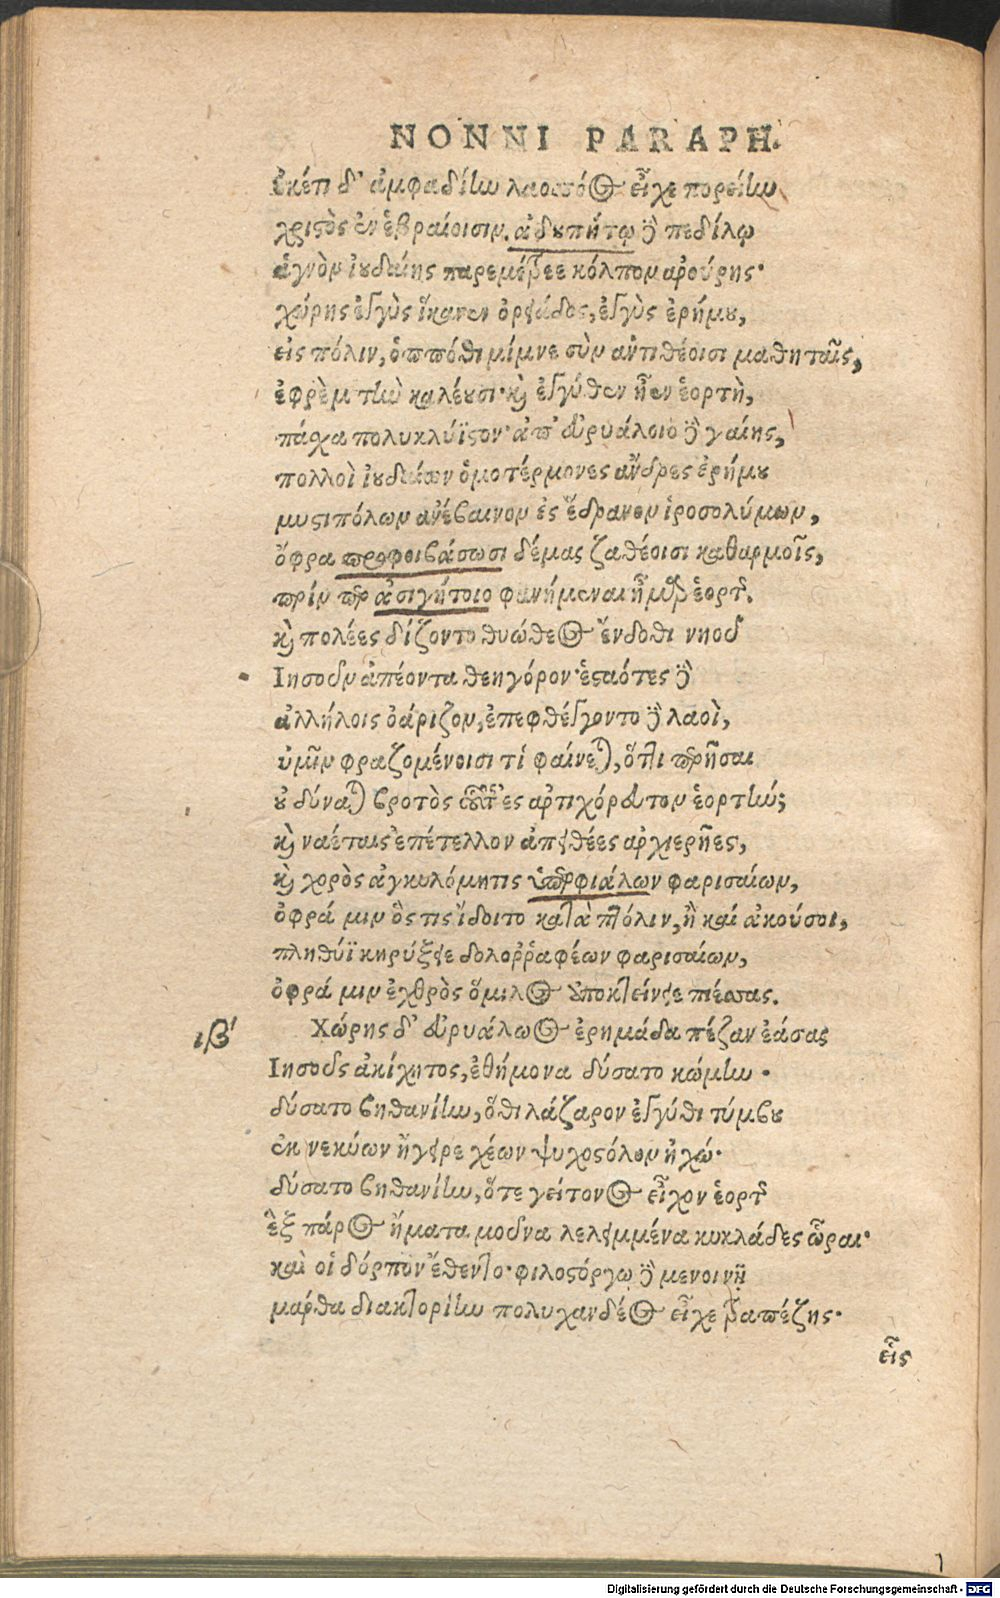 NONNI PARAPH.
ὐκέτι δ' ἀμφαδίlω λαοσσόος εἶχε πορείlω
χριστὸς ἐν ἑβραίοισιν. ἀδουπήτῳ δὲ πεδίλῳ
ἁγνὸν ἰουδαίης παρεμέτρεε κόλπον ἀρούρης·
χώρης ἐγγὺς ἵκανεν ὀρειάδος, ἐγγὺς ἐρήμου,
εἰς πόλιν, ὁππόθι μίμνε σὺν ἀντιθέοισι μαθηταῖς,
ἐφρὲμ τlὼ καλέουσι· καὶ ἐγγύθεν ἦεν ἑορτὴ,
πάσχα πολυκλύϊστον· ἀπ' εὐρυάλοιο δὲ γαίης,
πολλοὶ ἰουδαίων ὁμοτέρμονες ἄνδρες ἐρήμου
μυστιπόλων ἀνέβαινον ἐς ἕδρανον ἱροσολύμων,
ὄφρα προφοιβάσωσι δέμας ζαθέοισι καθαρμοῖς,
πρὶν περ ἀσιγήτοιο φανήμεναι ἦμαρ ἑορτῆς.
καὶ πολέες δίζοντο θυώδεος ἔνδοθι νηοῦ
Ιησοῦν ἀπέοντα θεηγόρον· ἑσταότες δὲ
ἀλλήλοις ὀάριζον, ἐπεφθέγγοντο δὲ λαοὶ,
ὑμῖν φραζομένοισι τί φαίνεται, ὅτι περῆσαι
οὐ δύναται βροτὸς οὗτος ἐς ἀρτιχόρευτον ἑορτlώ;
καὶ ναέταις ἐπέτελλον ἀπειθέες ἀρχιερῆες,
καὶ χορὸς ἀγκυλόμητις ὑπερφιάλων φαρισαίων,
ὀφρά μιν ὅς τις ἴδοιτο κατὰ πτόλιν, ἢ καὶ ἀκούσοι,
πληθύϊ κηρύξειε δολορῥαφέων φαρισαίων,
ὀφρά μιν ἐχθρὸς ὅμιλος ὑποκτείνειε πιέσσας.
ιβ' Χώρης δ' εὐρυάλωος ἐρημάδα πέζαν ἐάσας
Ιησοῦς ἀκίχητος, ἐθήμονα δύσατο κώμlω.
δύσατο βηθανίlω, ὅθι λάζαρον ἐγγύθι τύμβου
ἐκ νεκύων ἤγειρε χέων ψυχοστόλον ἠχώ·
δύσατο βηθανίlω, ὅτε γείτονος εἶχον ἑορτῆς
ἓξ πάρος ἤματα μοῦνα λελειμμένα κυκλάδες ὧραι·
καὶ οἱ δόρπον ἔθεντο· φιλοστόργῳ δὲ μενοινῇ
μάρθα διακτορίlω πολυχανδέος εἶχε τραπέζης·
εἷς
1
Digitalisierung gefördert durch die Deutsche Forschungsgemeinschaft - DFG